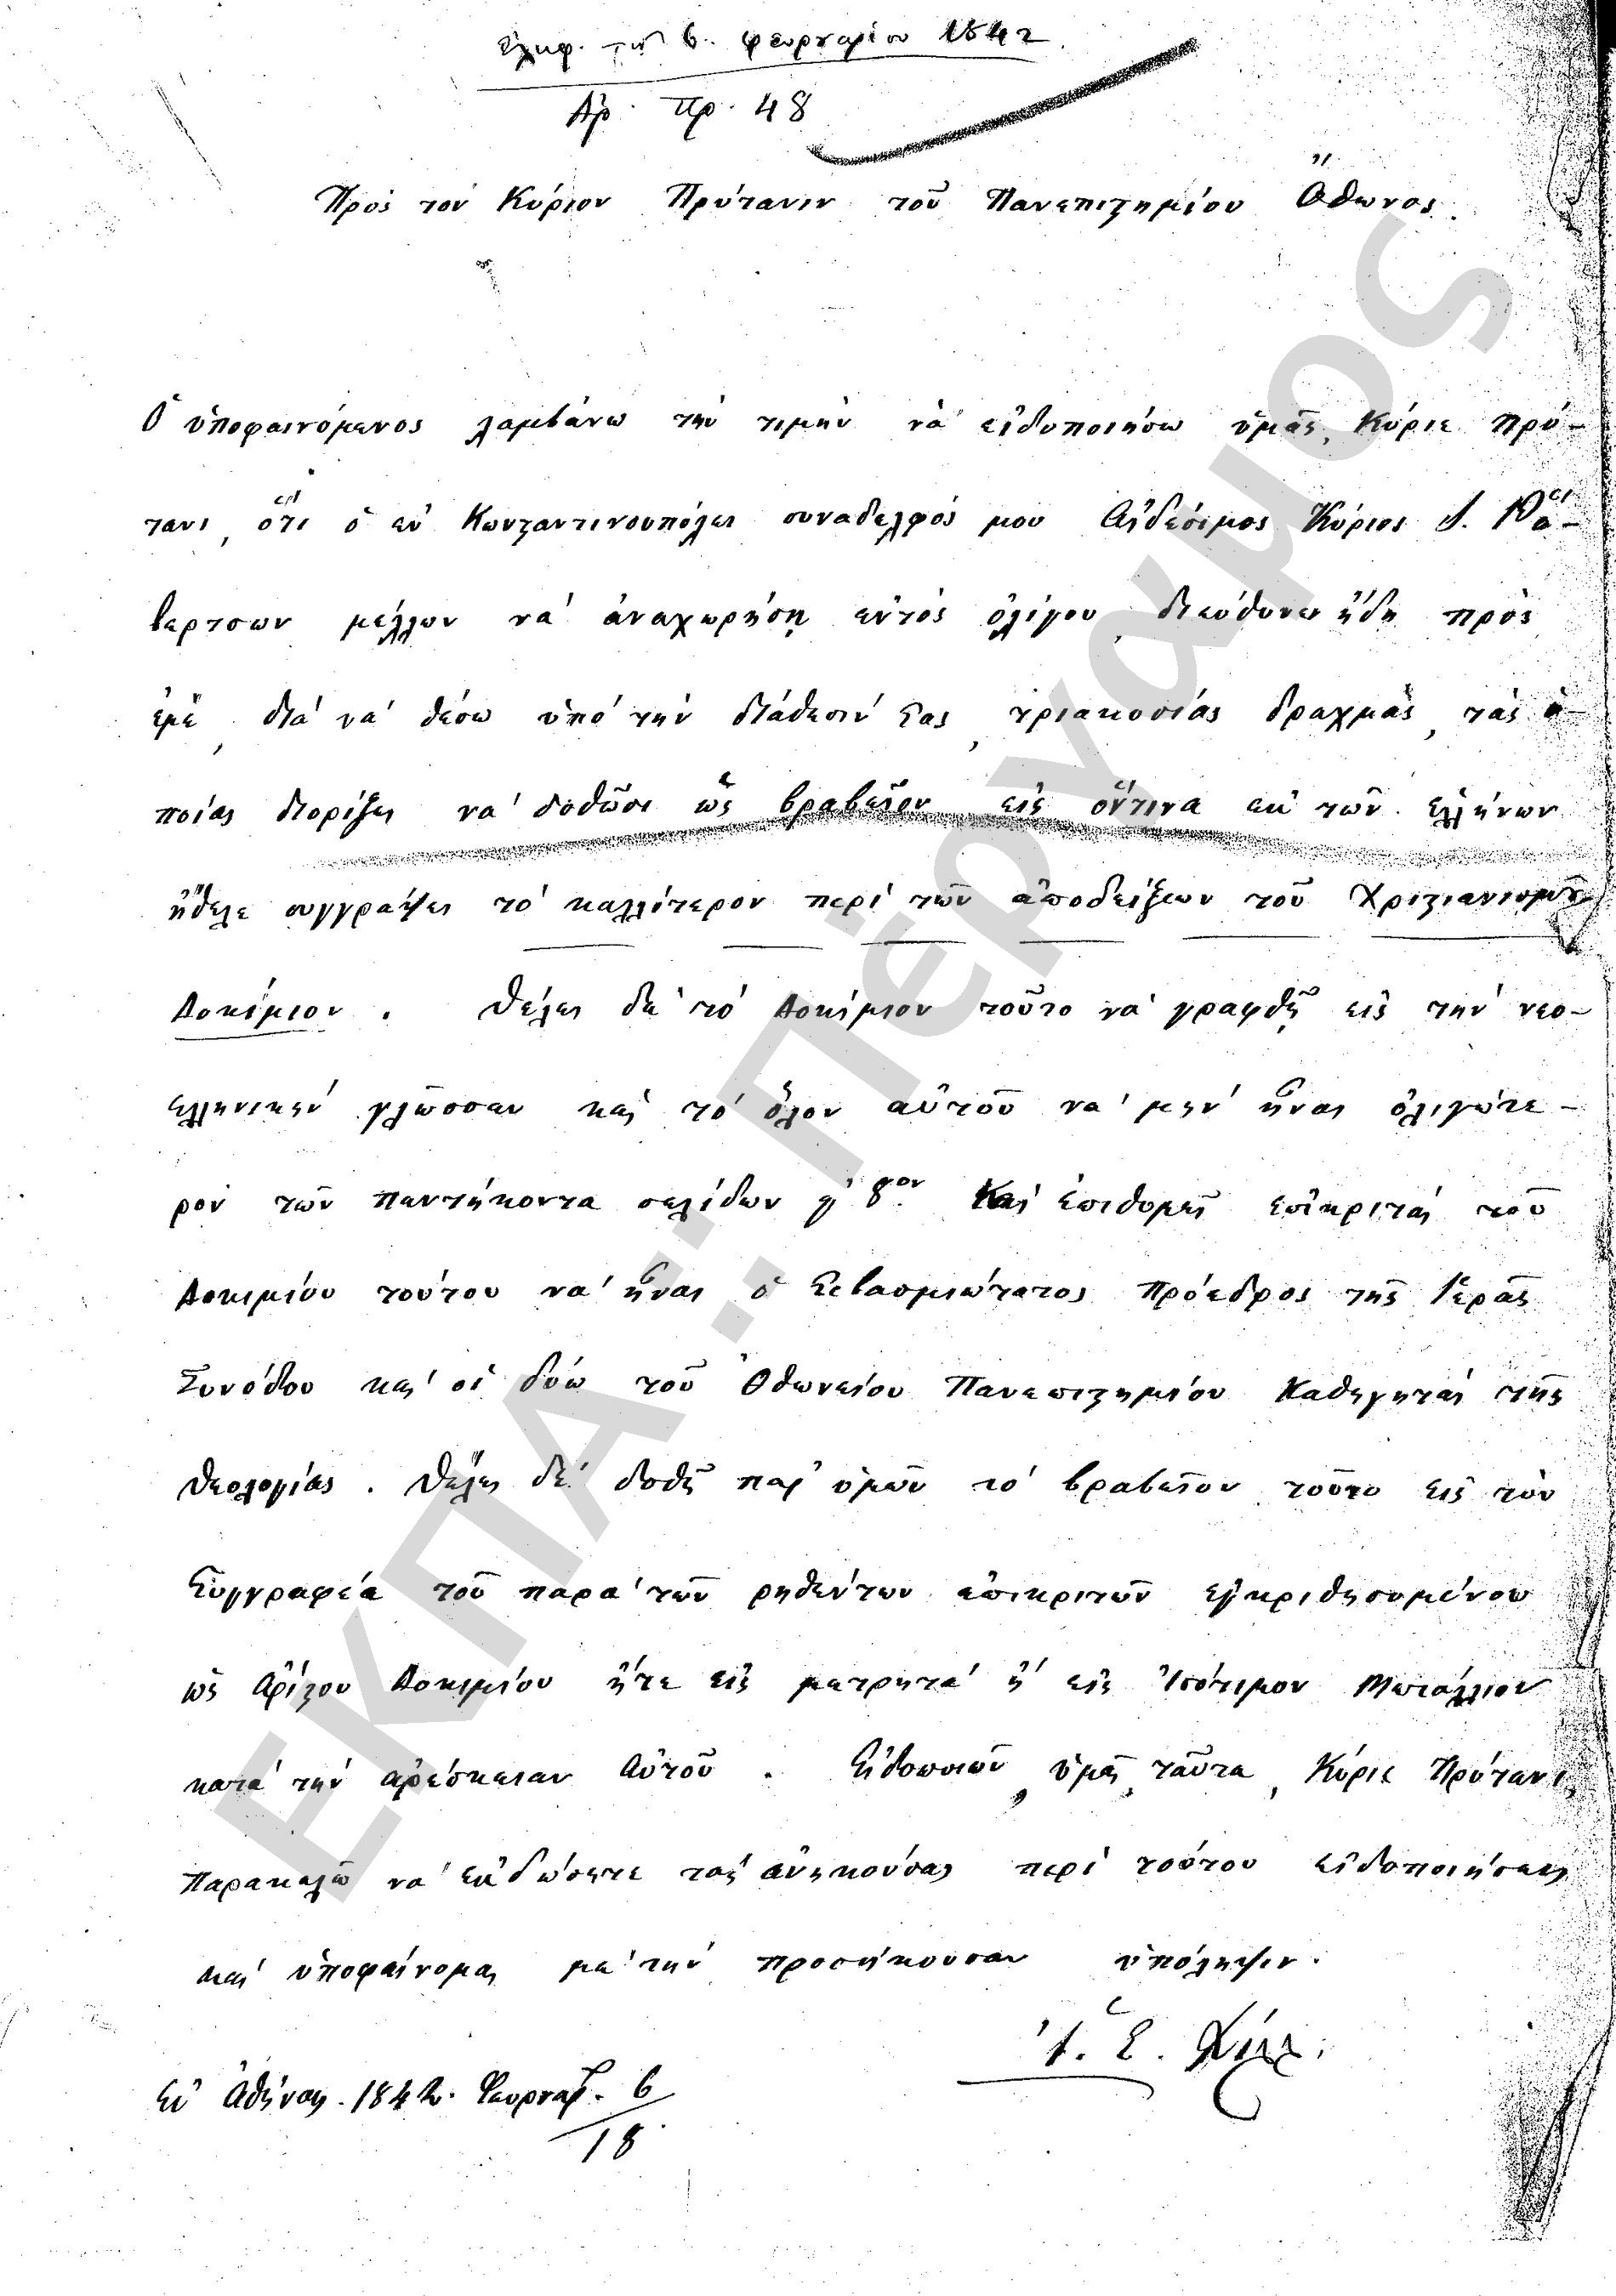 ἐλήφ. τῇ 6. φεβρουαρίου 1842
Ἀρ. πρ. 48
Πρὸς τὸν Κύριον Πρύτανιν τοῦ Πανεπιστημίου Ὄθωνος.
Ὁ ὑποφαινόμενος λαμβάνω τὴν τιμὴν νὰ εἰδοποιήσω ὑμᾶς, Κύριε Πρύ-
τανι, ὅτι ὁ ἐν Κωνσταντινουπόλει συνάδελφός μου Αἰδέσιμος Κύριος Ι. Ῥό-
βερτσων μέλλων νὰ ἀναχωρήσῃ ἐντὸς ὀλίγου, διευθύνει ἤδη πρὸς
ἐμὲ, διὰ νὰ θέσω ὑπὸ τὴν διάθεσίν Σας, τριακοσίας δραχμὰς, τὰς ὁ-
ποίας διορίζει νὰ δοθῶσι ὡς βραβεῖον εἰς ὅντινα ἐκ τῶν Ἑλλήνων
ἤθελε συγγράψει τὸ καλλίτερον περὶ τῶν ἀποδείξεων τοῦ Χριστιανισμοῦ
Δοκίμιον. Θέλει δὲ τὸ Δοκίμιον τοῦτο νὰ γραφθῇ εἰς τὴν νεο-
ελληνικὴν γλῶσσαν καὶ τὸ ὅλον αὐτοῦ νὰ μὴν ἦναι ὀλιγώτε-
ρον τῶν πεντήκοντα σελίδων 8ον. Καὶ ἐπιθυμεῖ ἐπικριταὶ τοῦ
Δοκιμίου τούτου νὰ ἦναι ὁ Σεβασμιώτατος Πρόεδρος τῆς Ἱερᾶς
Συνόδου καὶ οἱ δύω τοῦ Ὀθωνείου Πανεπιστημίου Καθηγηταὶ τῆς
Θεολογίας. Θέλει δὲ δοθῆ παρ' ὑμῶν τὸ βραβεῖον τοῦτο εἰς τὸν
Συγγραφέα τοῦ παρὰ τῶν ῥηθέντων ἐπικριτῶν ἐγκριθησομένου
ὡς ἀρίστου Δοκιμίου ἤτε εἰς μετρητὰ ἢ εἰς ἰσότιμον Μετάλλιον
κατὰ τὴν ἀρέσκειαν Αὐτοῦ. Εἰδοποιῶν, ὑμᾶς, ταῦτα, Κύριε Πρύτανι,
παρακαλῶ νὰ ἐκδώσητε τὰς ἀνηκούσας περὶ τούτου εἰδοποιήσεις
καὶ ὑποφαίνομαι μὲ τὴν προσήκουσαν ὑπόληψιν.
Ἐν Ἀθήναις. 1842. Φευρουαρ. 6/18